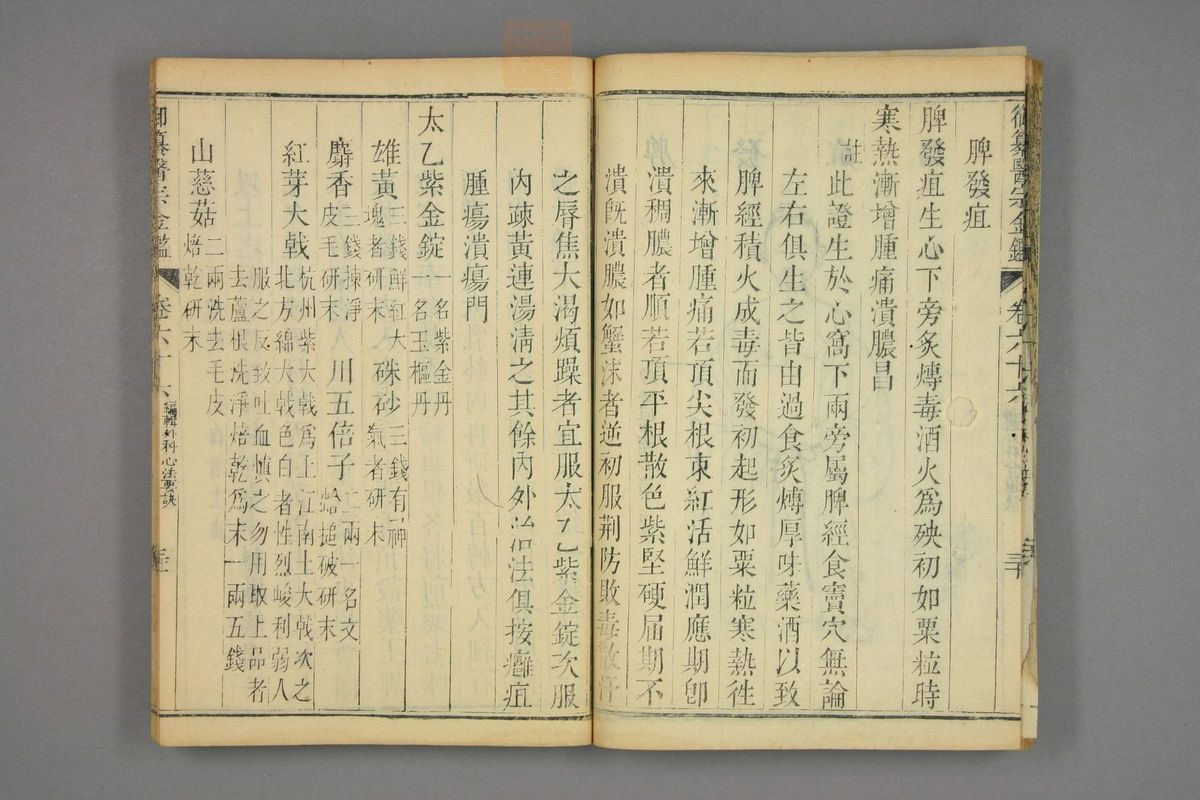 御纂醫宗金鑑 卷六十六
脾發疽
脾發疽生心下旁炙煿毒酒火為殃初如粟粒時
寒熱漸增腫痛潰膿昌
註 此證生於心窩下兩旁屬脾經食竇穴無論
左右俱生之皆由過食炙煿厚味藥酒以致
脾經積火成毒而發初起形如粟粒寒熱徃
來漸增腫痛若頂尖根束紅活鮮潤應期卽
潰稠膿者順若頂平根散色紫堅硬屆期不
潰旣潰膿如蟹沫者逆初服荆防敗毒散汗
之唇焦大渴煩躁者宜服太乙紫金錠次服
內疎黃連湯清之其餘內外治法俱按癰疽
腫瘍潰瘍門
太乙紫金錠 一名紫金丹
一名玉樞丹
雄黃 三錢鮮紅大
塊者研末 硃砂 三錢有神
氣者研末
麝香 三錢揀淨
皮毛研末 川五倍子 二兩一名文
蛤搥破研末
紅芽大戟 杭州紫大戟為上江南土大戟次之
北方綿大戟色白者性烈峻利弱人
服之反致吐血愼之勿用取上品者
去蘆根洗淨焙乾為末一兩五錢
山慈菇 二兩洗去毛皮
焙乾研末
御纂醫宗金鑑 卷六十六 編輯外科心法要訣